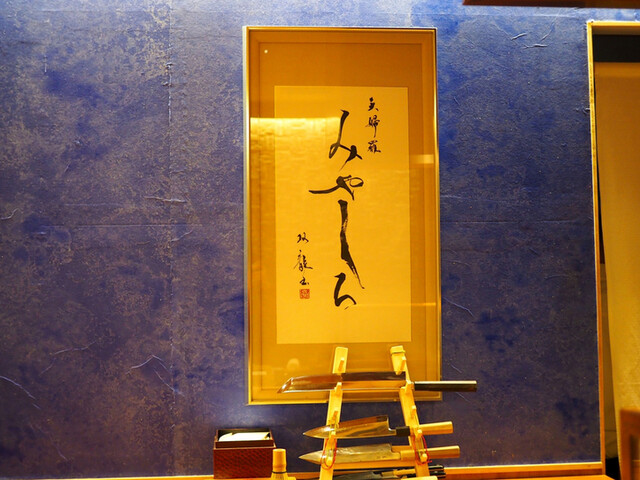 天婦羅
みやしろ
龍書